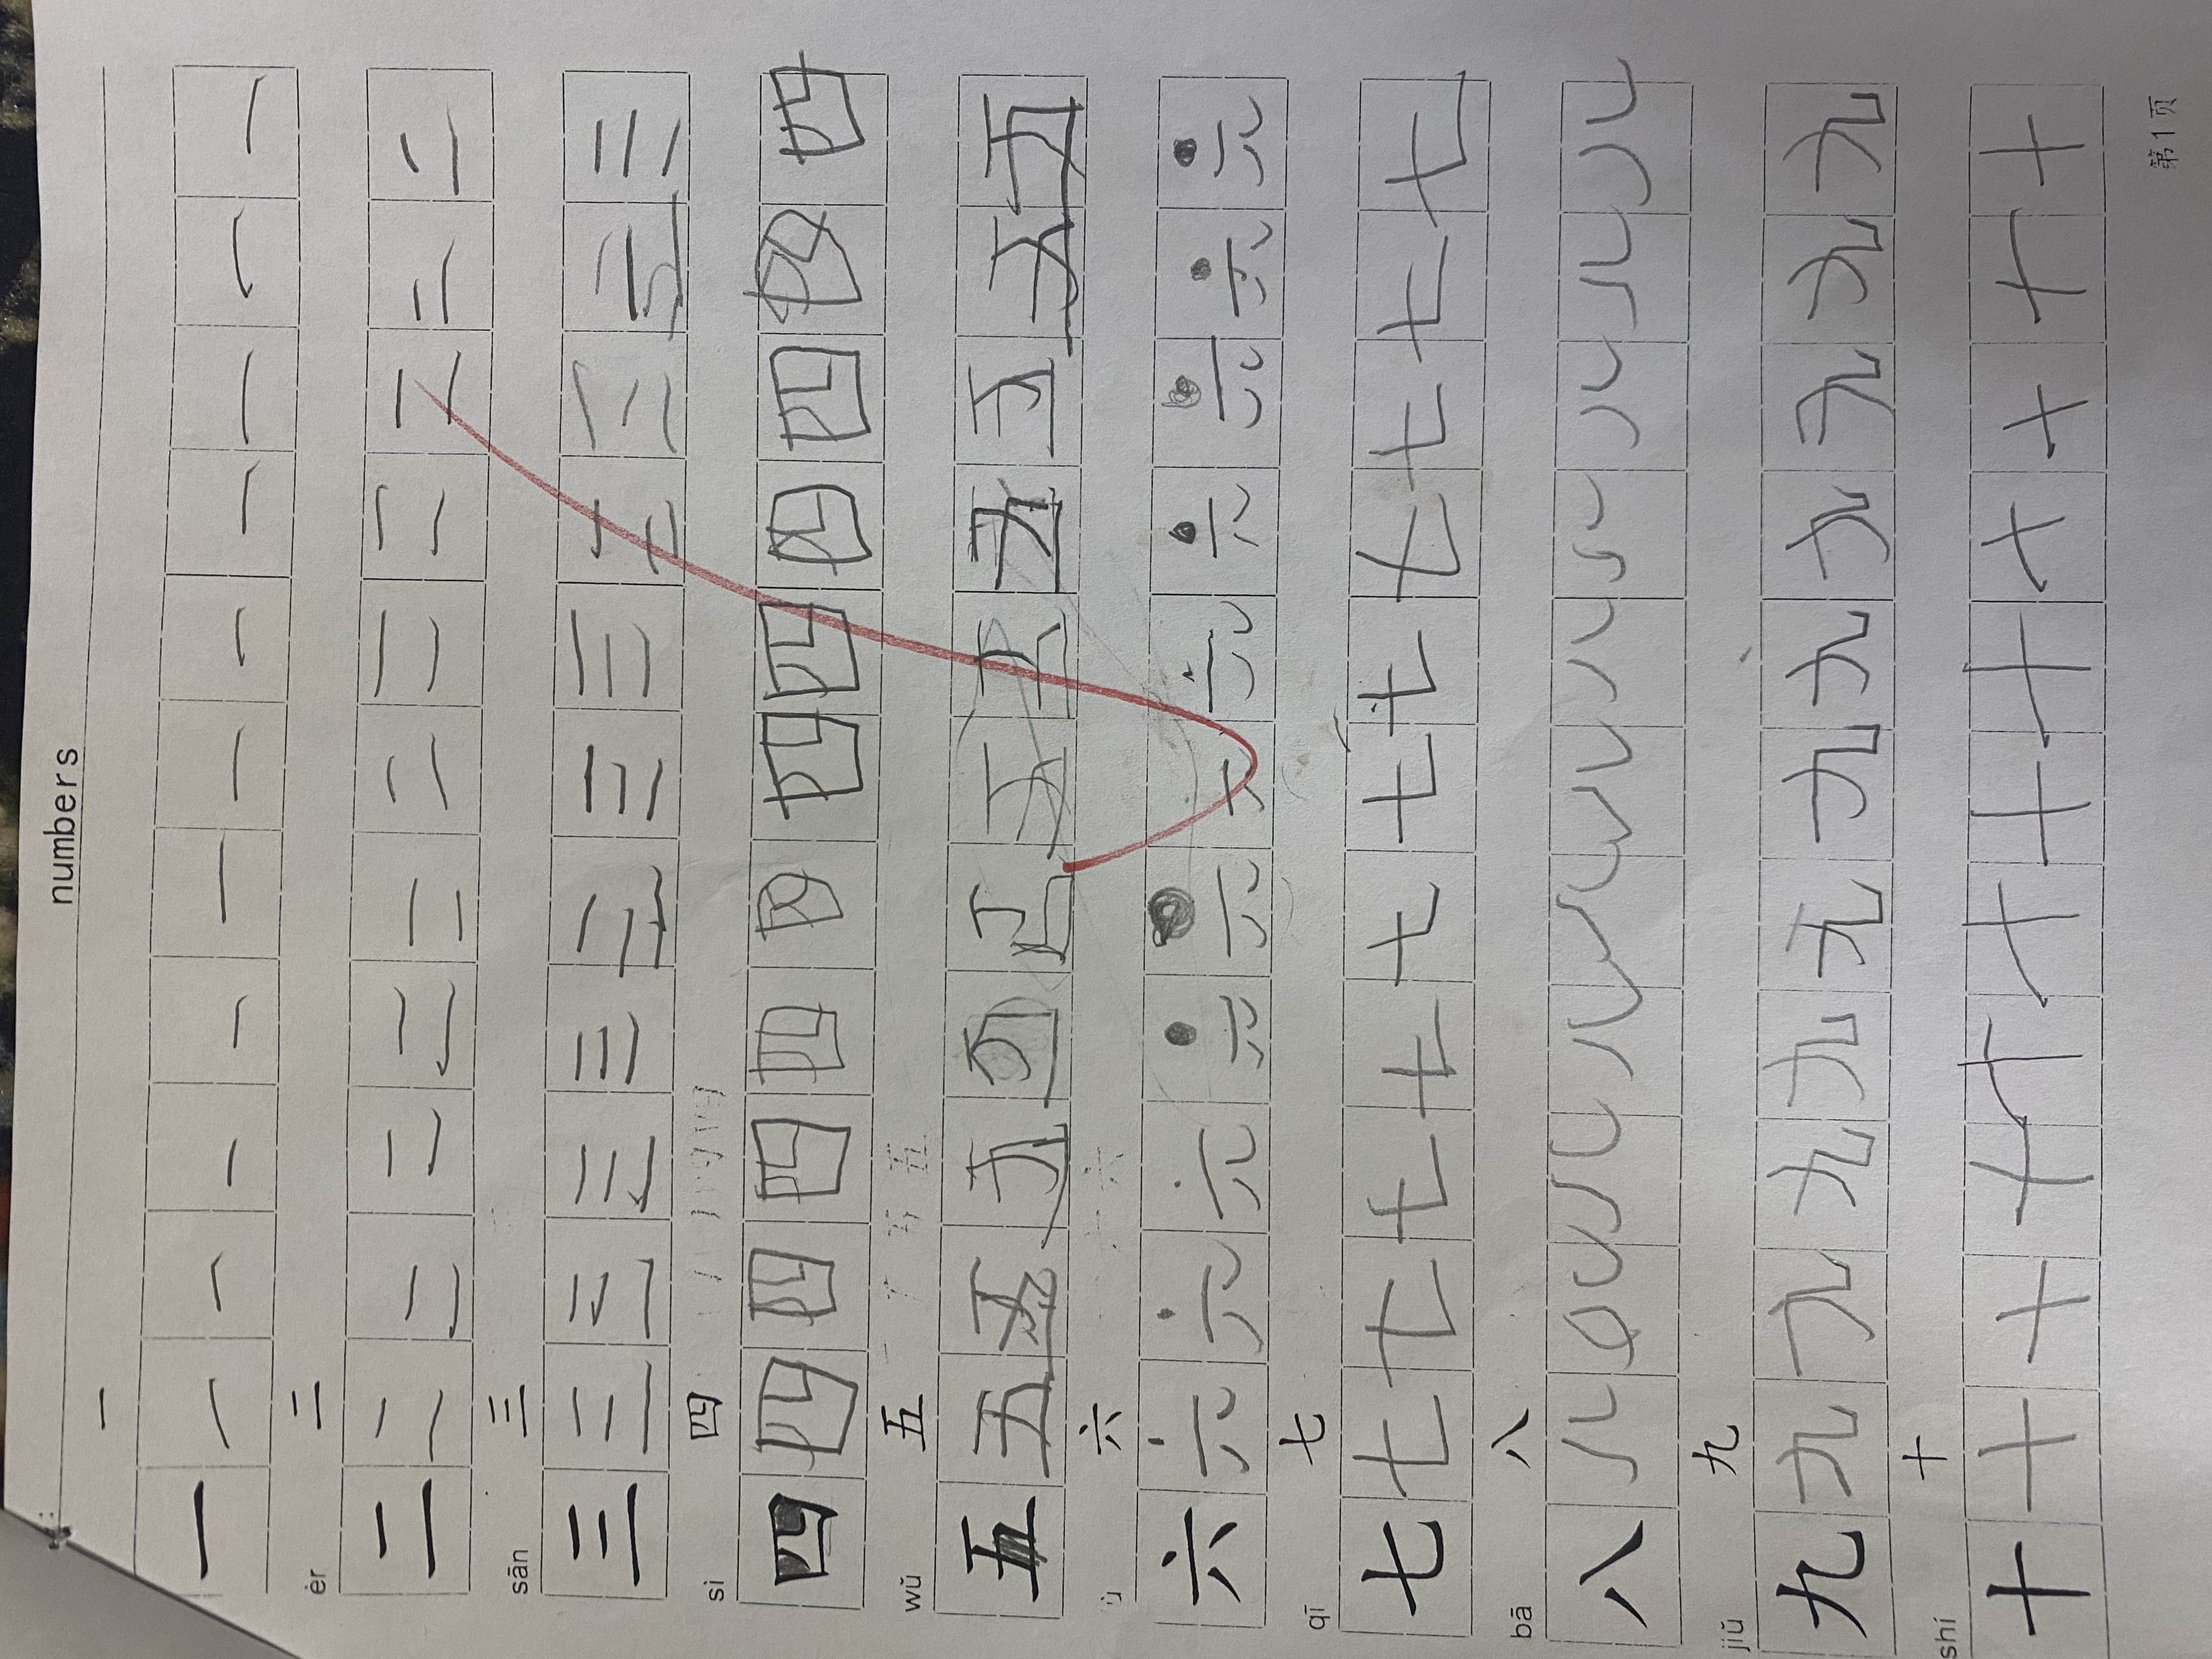 numbers
一
一 一 一 一 一 一 一 一 一 一 一 一
èr 二
二 二 二 二 二 二 二 二 二 二 二 二
sān 三
三 三 三 三 三 三 三 三 三 三 三 三
sì 四
四 四 四 四 四 四 四 四 四 四 四 四
wǔ 五
五 五 五 五 五 五 五 五 五 五 五 五
六
六 六 六 六 六 六 六 六 六 六 六 六
qī 七
七 七 七 七 七 七 七 七 七 七 七 七
bā 八
八 八 八 八 八 八 八 八 八 八 八 八
jiǔ 九
九 九 九 九 九 九 九 九 九 九 九 九
shí 十
十 十 十 十 十 十 十 十 十 十 十 十
第1页